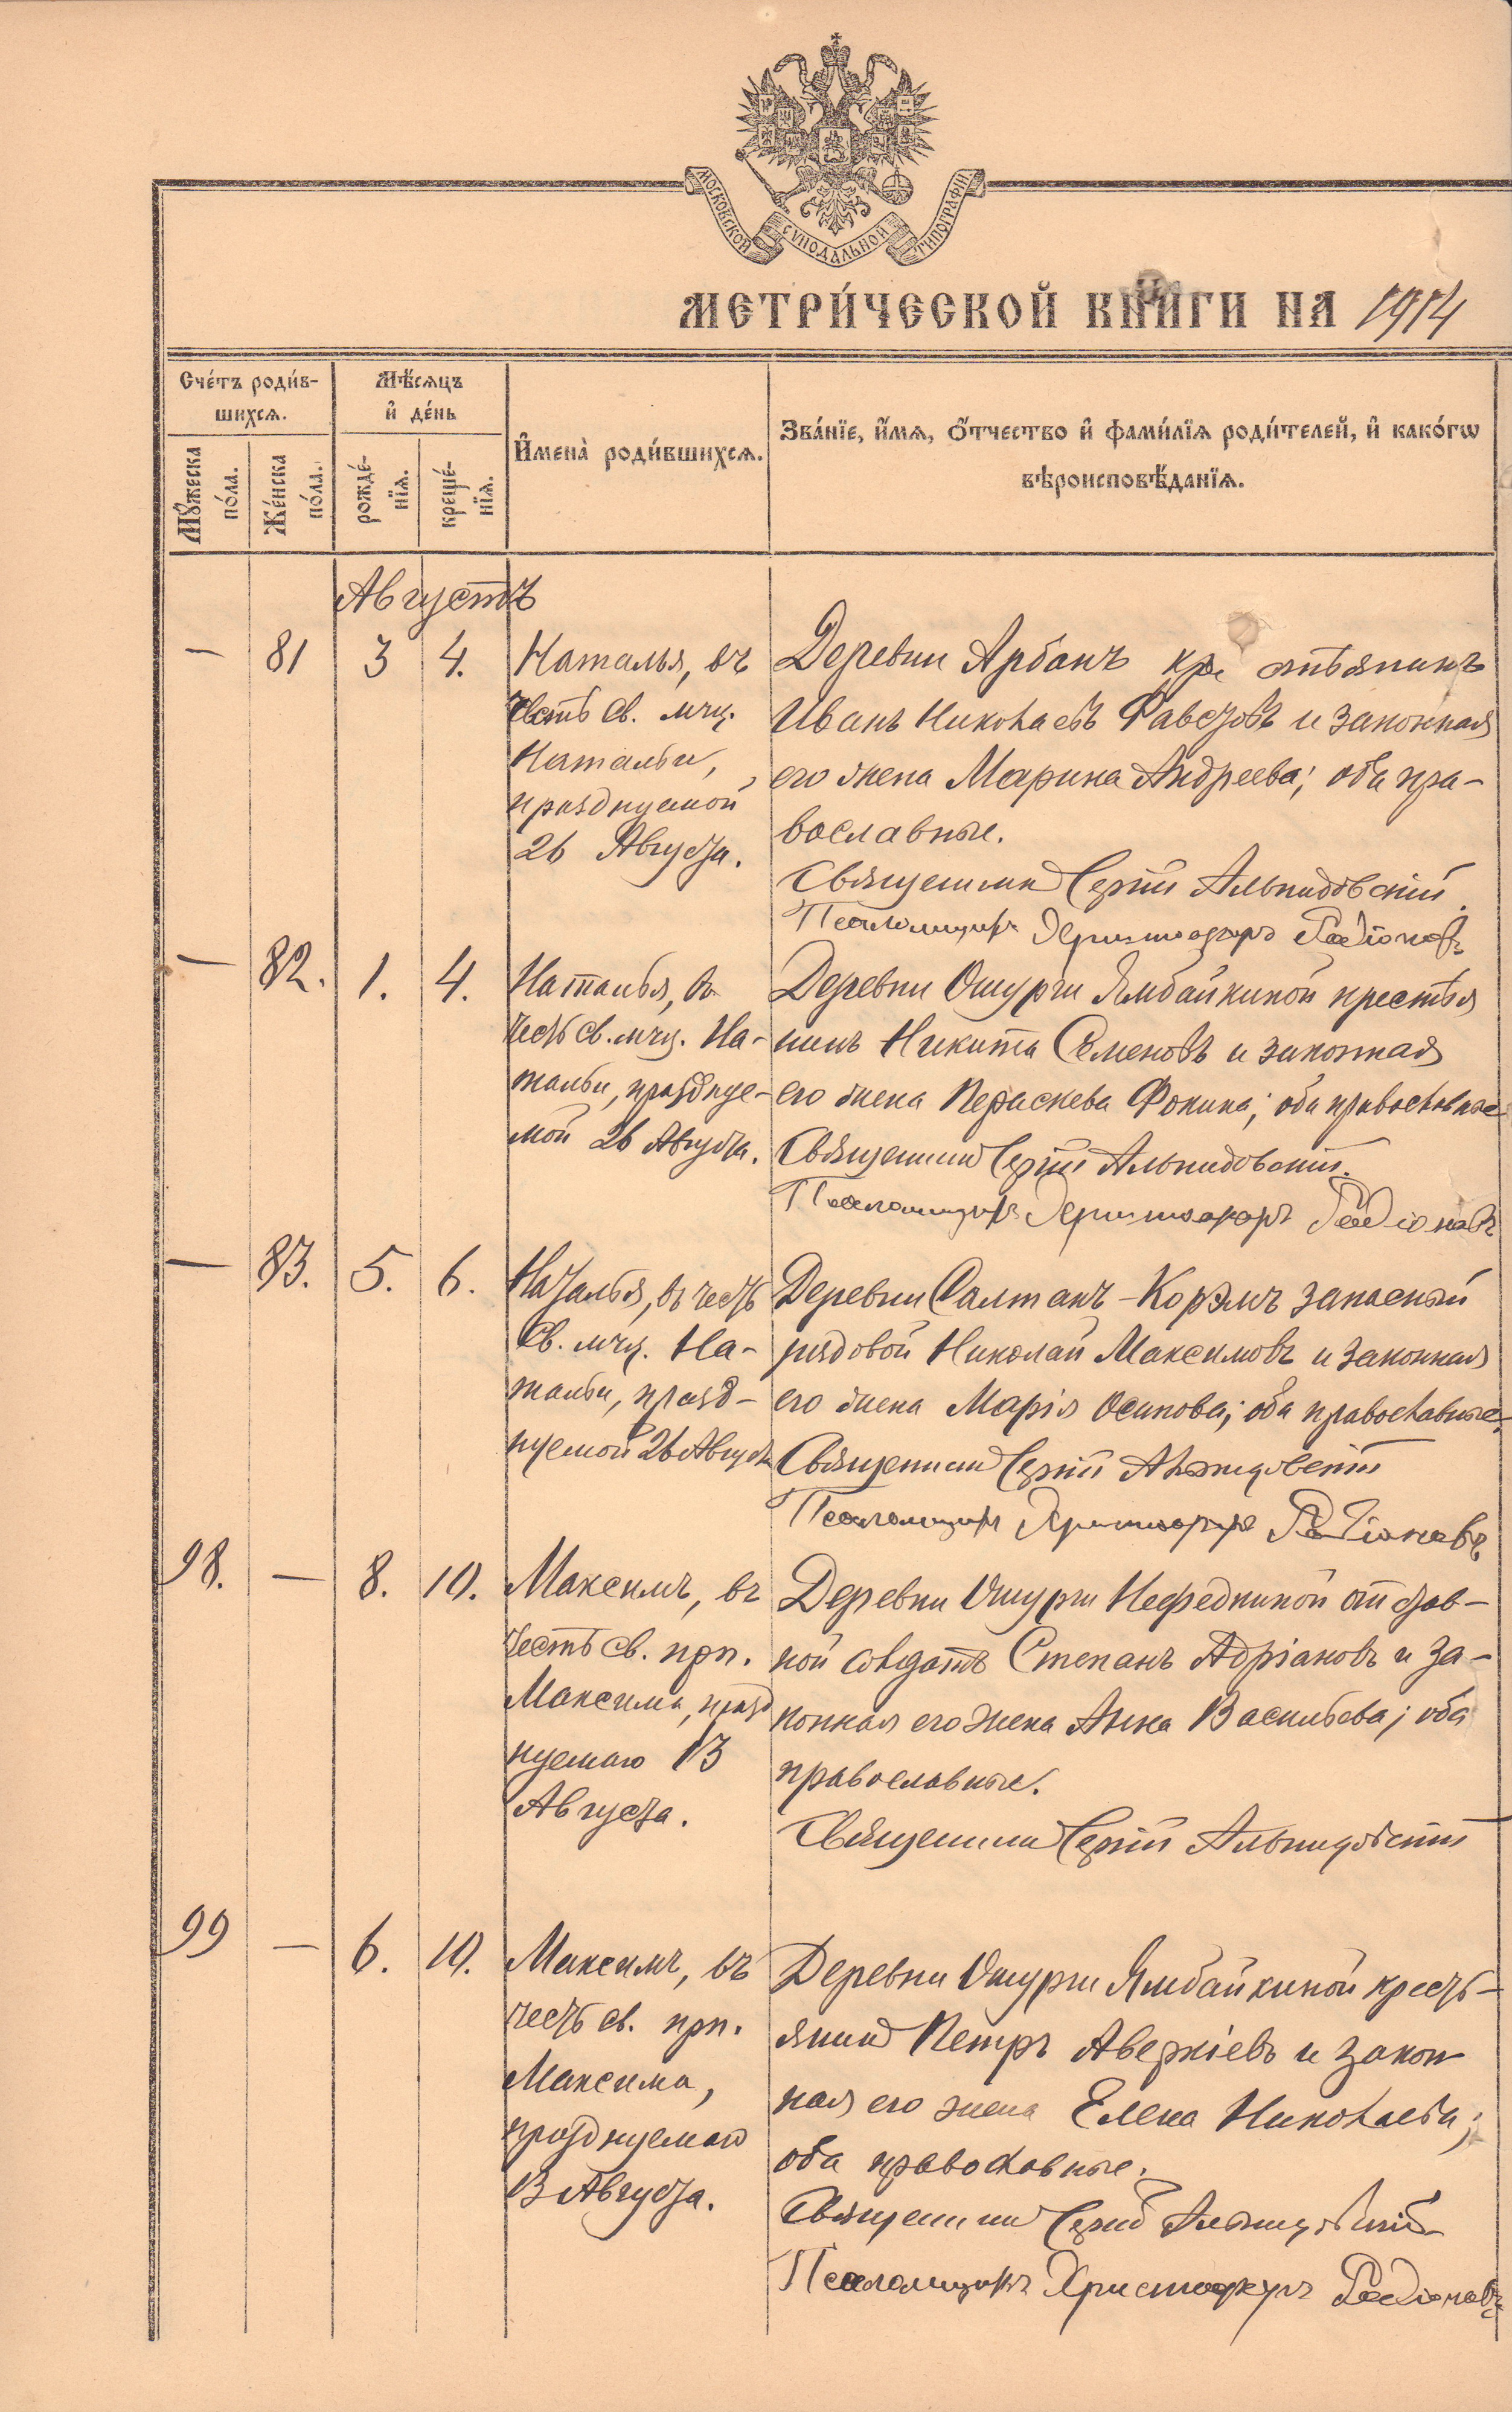 МОСКОВСКОЙ СѴНОДАЛЬНОЙ ТИПОГРАФІИ
МЕТРИ́ЧЕСКОЙ КНИ́ГИ НА 1914
Сче́тъ роди́в-
шихсѧ.
Мѣ́сѧцъ
и҆ де́нь
И҆мена̀ роди́вшихсѧ.
Зва́нїе, и҆́мѧ, ѻ҆́тчество и҆ фами́лїѧ роди́телей, и҆ како́гѡ
вѣроисповѣ́данїѧ.
Мꙋ́жеска
по́ла.
Же́нска
по́ла.
рожде́-
нїѧ.
креще́-
нїѧ.
Августъ
— 81 3 4.
Наталья, въ
честь св. мчц.
Натальи,
празднуемой
26 Августа.
Деревни Арбанъ крестьянинъ
Иванъ Николаевъ и законная
его жена Марина Андреева; оба пра-
вославные.
Священникъ Сергій Альпидовскій.
Псаломщикъ Христофоръ Радіоновъ
— 82. 1. 4.
Наталья, въ
честь св. мчц. На-
тальи, празднуе-
мой 26 Августа.
Деревни Ошурги Ямбайкиной крестья
нинъ Никита Семеновъ и законная
его жена Пераскева Фокина; оба православные
Священникъ Сергій Альпидовскій.
Псаломщикъ Христофоръ Радіоновъ
— 83. 5. 6.
Наталья, въ честь
св. мчц. На-
тальи, празд-
нуемой 26 Августа
Деревни Салтакъ-Корэмъ запасный
рядовой Николай Максимовъ и законная
его жена Марія Осипова; оба православные.
Священникъ Сергій Альпидовскій
Псаломщикъ Христофоръ Радіоновъ
98. — 8. 10.
Максимъ, въ
честь св. прп.
Максима, празд
нуемаго 13
Августа.
Деревни Ошурги Нефедкиной отстав-
ной солдатъ Степанъ Адріановъ и за-
конная его жена Анна Васильева; оба
православные.
Священникъ Сергій Альпидовскій
99 — 6. 10.
Максимъ, въ
честь св. прп.
Максима,
празднуемаго
13 Августа.
Деревни Ошурги Ямбайкиной кресть-
янинъ Петръ Аверкіевъ и закон
ная его жена Елена Николаева;
оба православные.
Священникъ Сергій Альпидовскій
Псаломщикъ Христофоръ Радіоновъ